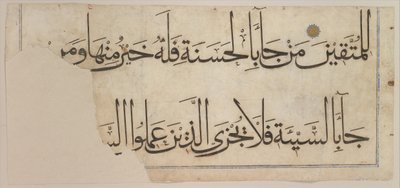 لِلْمُتَّقِينَ مَنْ جَاءَ بِالْحَسَنَةِ فَلَهُ خَيْرٌ مِنْهَا وَمَنْ
جَاءَ بِالسَّيِّئَةِ فَلَا يُجْزَى الَّذِينَ عَمِلُوا